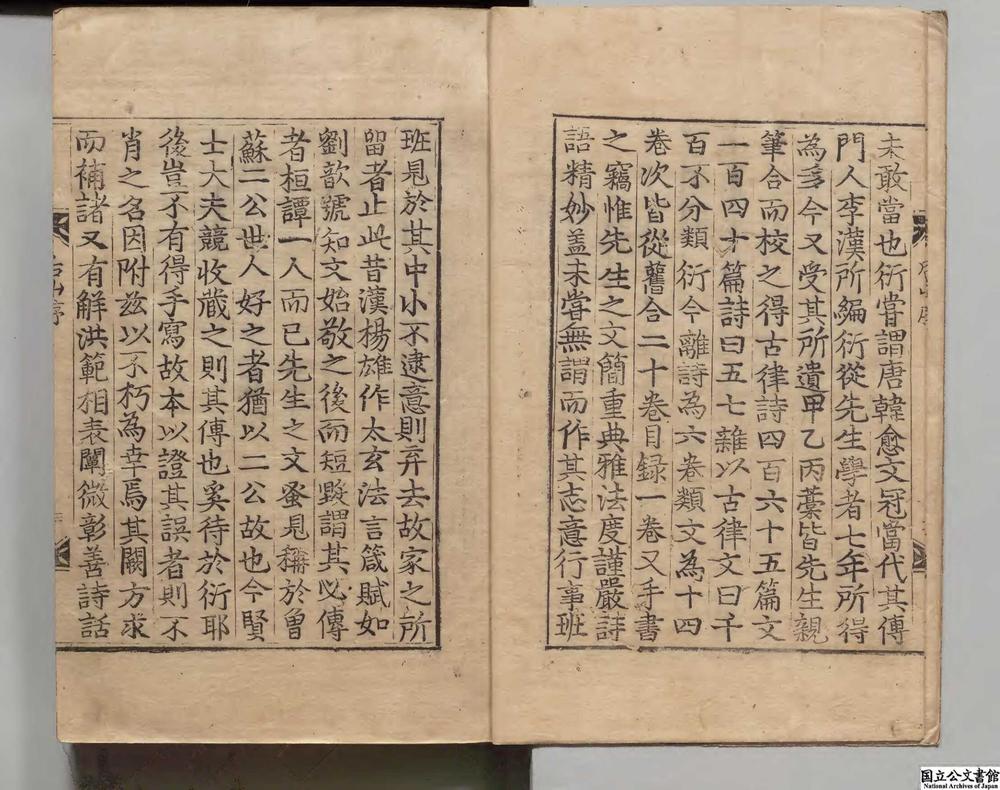 未敢當也衍嘗謂唐韓愈文冠當代其傳
門人李漢所編衍從先生學者七年所得
為多今又受其所遺甲乙丙藁皆先生親
筆合而校之得古律詩四百六十五篇文
一百四十篇詩曰五七雜以古律文曰千
百不分類衍今離詩為六卷類文為十四
卷次皆從舊合二十卷目録一卷又手書
之竊惟先生之文簡重典雅法度謹嚴詩
語精妙盖未嘗無謂而作其志意行事班
班見於其中小不逮意則弃去故家之所
留者止此昔漢楊雄作太玄法言箴賦如
劉歆號知文始敬之後而短毀謂其必傳
者桓譚一人而已先生之文蚤見稱於曾
蘇二公世人好之者猶以二公故也今賢
士大夫競收蔵之則其傳也奚待於衍耶
後豈不有得手寫故本以證其誤者則不
肖之名因附兹以不朽為幸焉其闕方求
而補諸又有解洪範相表闡微彰善詩話
后山序